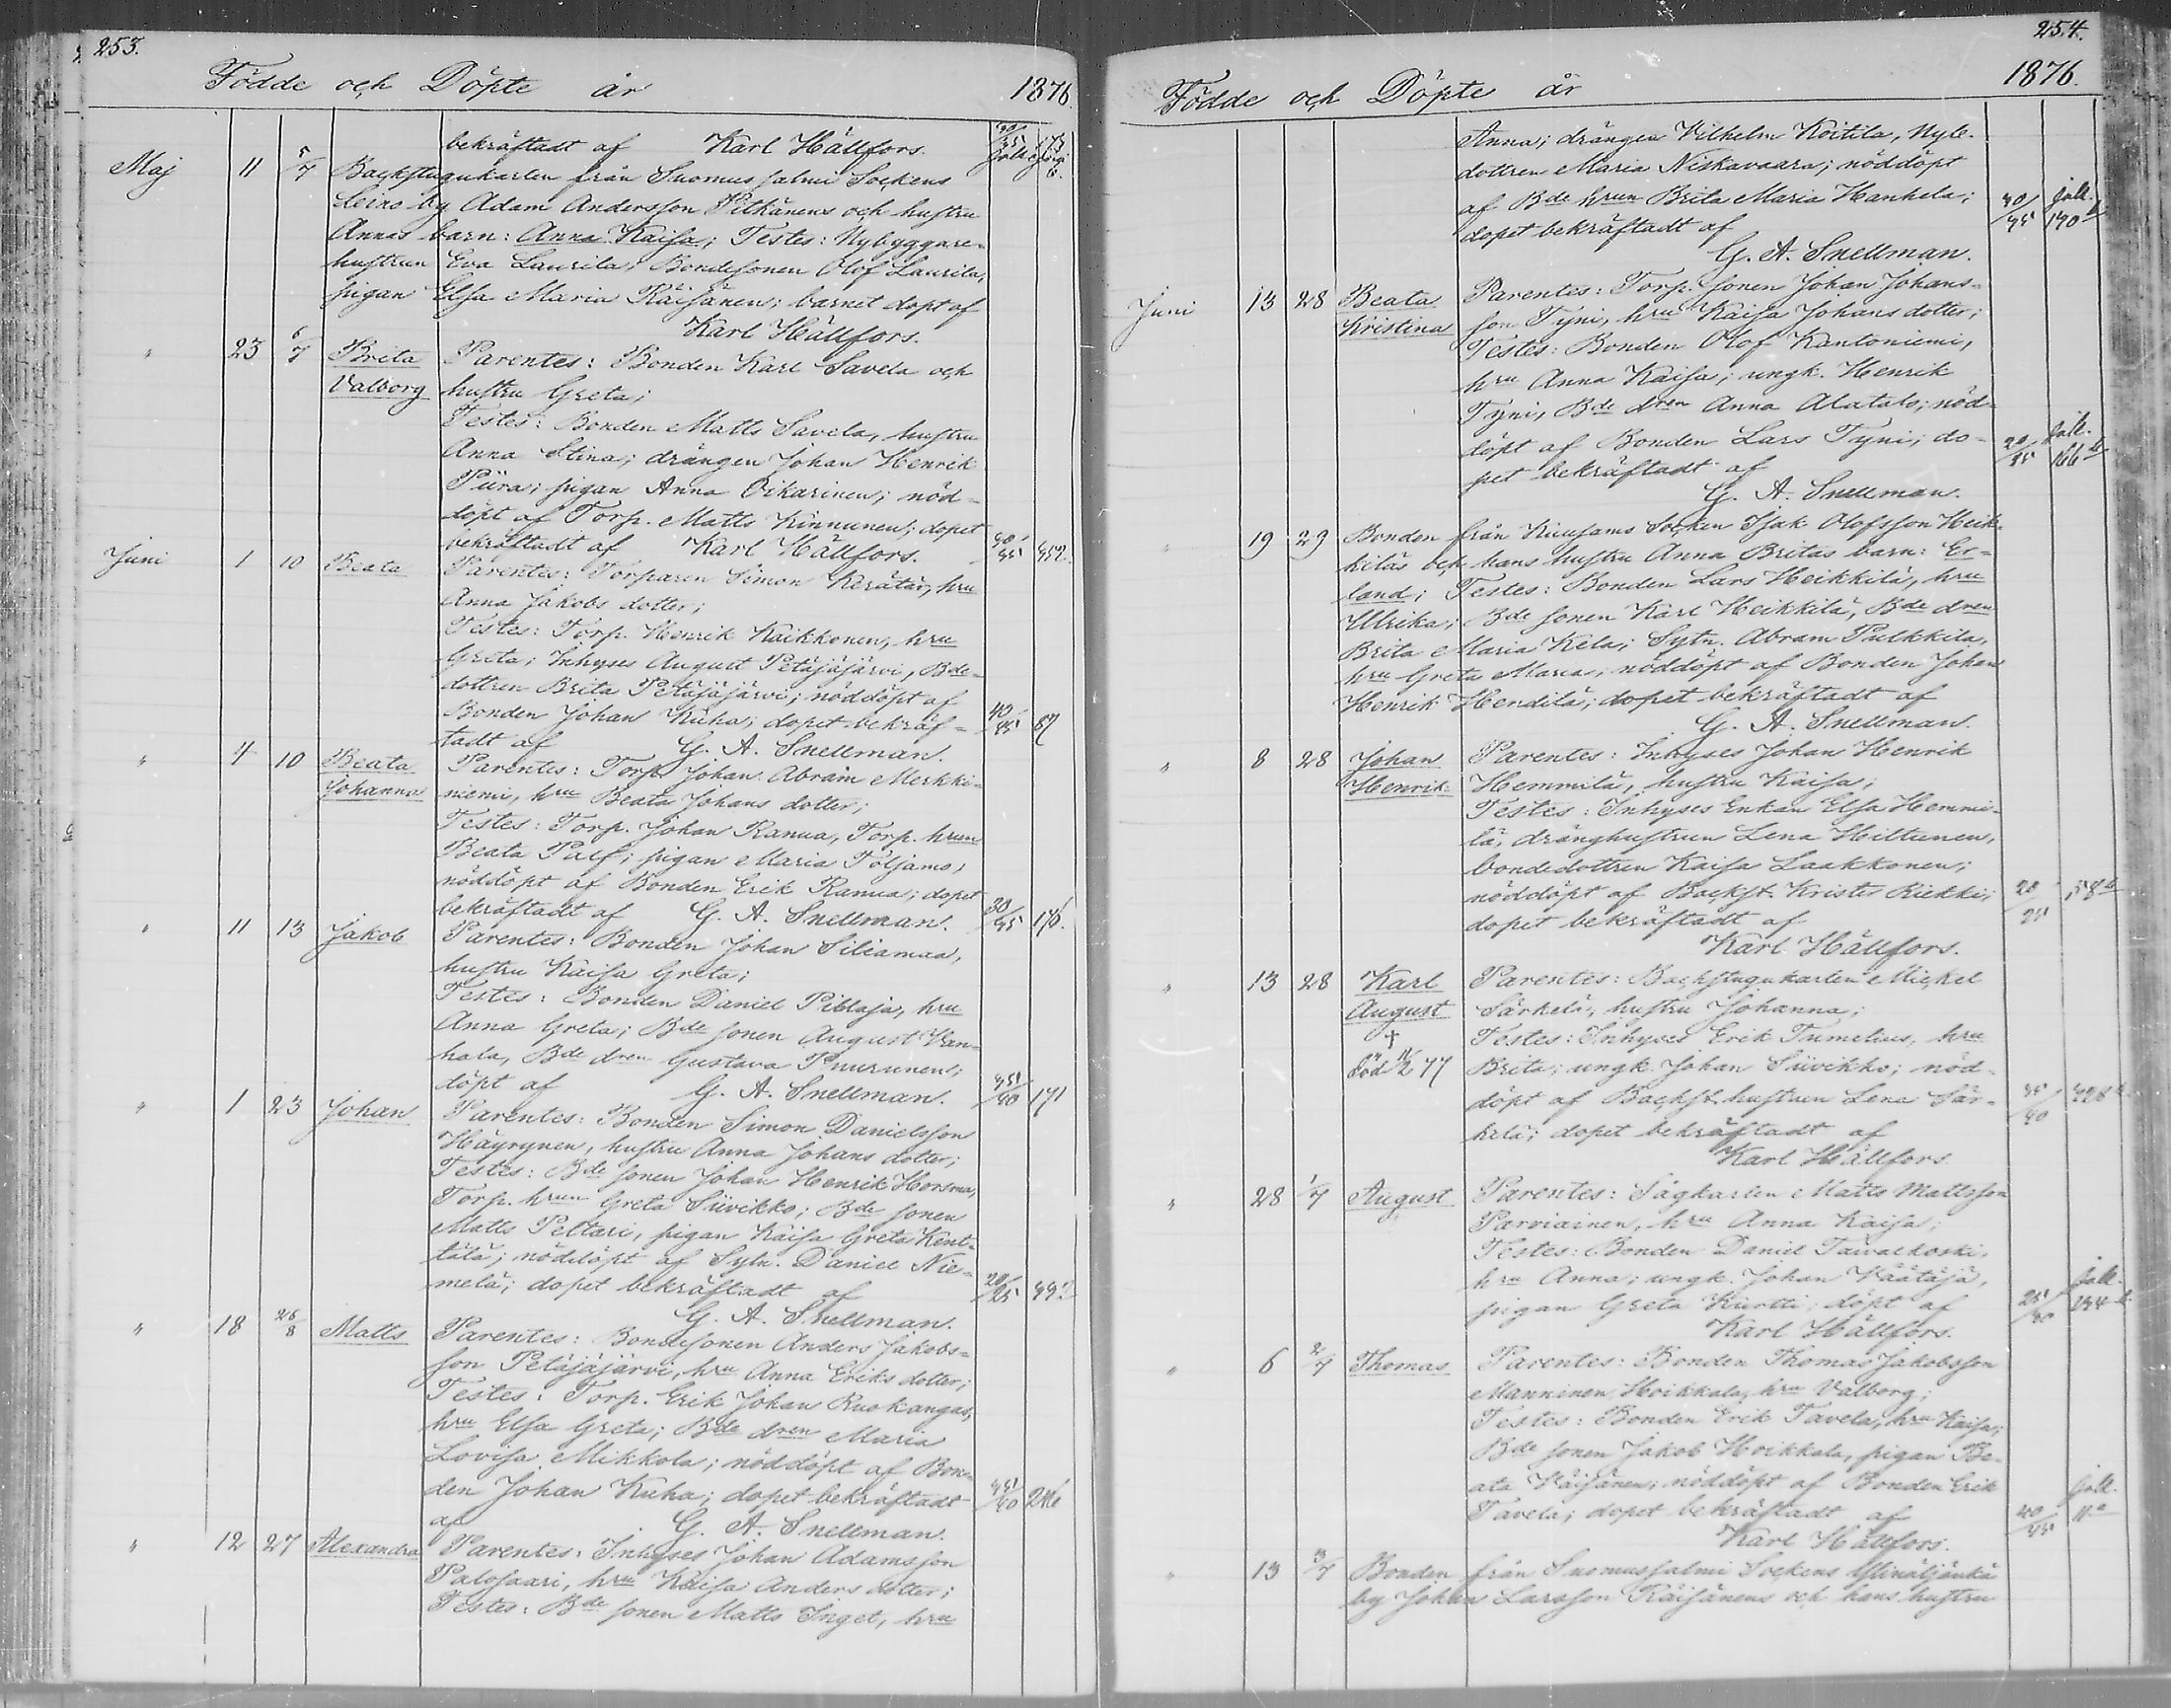 253.
Födde och Döpte år 1876.
bekräftadt af Karl Hällfors.
Maj 11 5/7 Backstugukarlen från Suomussalmi Sockens
Leino by Adam Andersson Pitkänens och hustru
Annas barn: Anna Kaisa; Testes: Nybyggare-
hustrun Eva Laurila, Bondesonen Olof Laurila,
pigan Elsa Maria Räisänen; barnet döpt af
Karl Hällfors.
" 23 6/7 Brita Parentes: Bonden Karl Savela och
Valborg hustru Greta;
Testes: Bonden Matts Savela, hustru
Anna Stina; drängen Johan Henrik
Piira; pigan Anna Oikarinen; nöd-
döpt af Torp. Matts Kinnunen; dopet
bekräftadt af Karl Hällfors. 40/45 452.
Juni 1 10 Beata Parentes: Torparen Simon Kerätär, hru
Anna Jakobs dotter;
Testes: Torp. Henrik Kaikkonen, hru
Greta; Inhyses August Petäjäjärvi, Bde-
dottren Brita Petäjäjärvi; nöddöpt af
Bonden Johan Kuha; dopet bekräf-
tadt af G. A. Snellman. 40/45 87
" 4 10 Beata Parentes: Torp. Johan Abram Merkki-
Johanna niemi, hru Beata Johans dotter;
Testes: Torp. Johan Ranua, Torp. hrun
Beata Palf; pigan Maria Poljamo;
nöddöpt af Bonden Erik Ranua; dopet
bekräftadt af G. A. Snellman. 30/35 176.
" 11 13 Jakob Parentes: Bonden Johan Siliamaa,
hustru Kaisa Greta;
Testes: Bonden Daniel Piblaja, hru
Anna Greta; Bde sonen August Van-
hala, Bde dren Gustava Puurunen;
döpt af G. A. Snellman. 35/40 171
" 1 23 Johan Parentes: Bonden Simon Danielsson
Häyrynen, hustru Anna Johans dotter;
Testes: Bde sonen Johan Henrik Horsma,
Torp. hrun Greta Siivikko; Bde sonen
Matts Peltari, pigan Kaisa Greta Kent-
tälä; nöddöpt af Sytn. Daniel Nie-
melä; dopet bekräftadt af
G. A. Snellman. 20/25
" 18 26/8 Matts Parentes: Bondesonen Anders Jakobs-
son Petäjäjärvi, hru Anna Eriks dotter;
Testes: Torp. Erik Johan Ruokangas,
hru Elsa Greta; Bde dren Maria
Lovisa Mikkola; nöddöpt af Bon-
den Johan Kuha; dopet bekräftadt
af G. A. Snellman. 35/40
" 12 27 Alexandra Parentes: Inhyses Johan Adamsson
Palosaari, hru Kaisa Anders dotter;
Testes: Bde sonen Matts Inget, hru
254.
Födde och Döpte år 1876.
Anna; drängen Vilhelm Koitila, Nyb.
dottren Maria Niskavaara; nöddöpt
af Bde hrun Brita Maria Hankela;
dopet bekräftadt af 40/45
G. A. Snellman.
Juni 13 28 Beata Parentes: Torp. sonen Johan Johans-
Kristina son Tyni, hru Kaisa Johans dotter;
Testes: Bonden Olof Kantoniemi,
hru Anna Kaisa; ungk. Henrik
Tyni, Bde dren Anna Alatalo; nöd-
döpt af Bonden Lars Tyni; do-
pet bekräftadt af
G. A. Snellman.
" 19 29 Bonden från Kuusamo Socken Isak Olofsson Heik-
kiläs och hans hustru Anna Britas barn: Er-
land; Testes: Bonden Lars Heikkilä, hru
Ulrika; Bde sonen Karl Heikkilä, Bde dren
Brita Maria Kela; Sytn. Abram Pulkkila,
hru Greta Maria; nöddöpt af Bonden Johan
Henrik Hendilä; dopet bekräftadt af
G. A. Snellman.
" 8 28 Johan Parentes: Inhyses Johan Henrik
Henrik Hemmilä, hustru Kaisa;
Testes: Inhyses Enkan Elsa Hemmi-
lä, dränghustrun Lena Hiltunen,
bondedottren Kaisa Laakkonen;
nöddöpt af Backst. Krister Riekki;
dopet bekräftadt af
Karl Hällfors.
" 13 28 Karl Parentes: Backstugukarlen Mickel
August Särkelä, hustru Johanna;
† Testes: Inhyses Erik Tumelius, hru
död 11/2 77 Brita; ungk. Johan Siivikko; nöd-
döpt af Backst. hustrun Lena Sär-
kelä; dopet bekräftadt af
Karl Hällfors.
" 28 1/7 August Parentes: Sågkarlen Matts Mattsson
Parviainen, hru Anna Kaisa;
Testes: Bonden Daniel Taivalkoski,
hru Anna; ungk. Johan Väätäjä,
pigan Greta Kurtti; döpt af
Karl Hällfors.
" 6 2/7 Thomas Parentes: Bonden Thomas Jakobsson
Manninen Hoikkala, hru Valborg;
Testes: Bonden Erik Tavela, hru Kaisa;
Bde sonen Jakob Hoikkala, pigan Be-
ata Räisänen; nöddöpt af Bonden Erik
Tavela; dopet bekräftadt af
Karl Hällfors.
" 13 3/7 Bonden från Suomussalmi Sockens
by Johan Larsson Räisänens och hans hustru